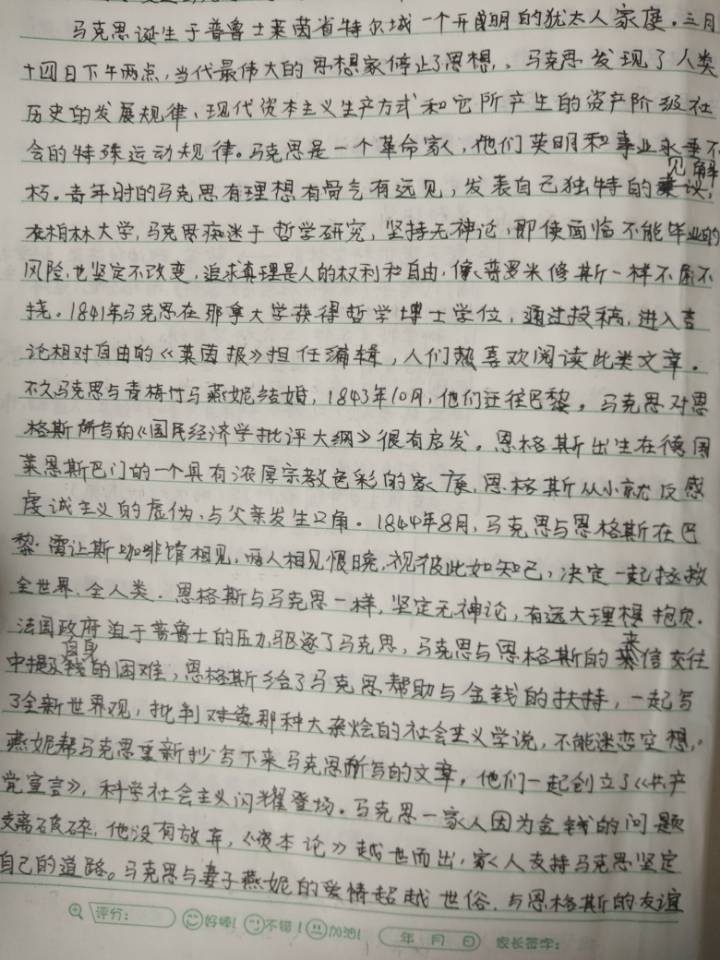 马克思诞生于普鲁士莱茵省特尔城一个开明的犹太人家庭。三月
十四日下午两点,当代最伟大的思想家停止了思想。马克思发现了人类
历史的发展规律、现代资本主义生产方式和它所产生的资产阶级社
会的特殊运动规律。马克思是一个革命家,他们英明和事业永垂不
朽。青年时的马克思有理想有骨气有远见,发表自己独特的见解,
在柏林大学,马克思痴迷于哲学研究,坚持无神论,即使面临不能毕业的
风险,也坚定不改变,追求真理是人的权利和自由,像普罗米修斯一样不屈不
挠。1841年马克思在耶拿大学获得哲学博士学位,通过投稿,进入言
论相对自由的《莱茵报》担任编辑,人们热喜欢阅读此类文章。
不久马克思与青梅竹马燕妮结婚,1843年10月,他们迁往巴黎。马克思对恩
格斯所写的《国民经济学批评大纲》很有启发。恩格斯出生在德国
莱恩斯巴门的一个具有浓厚宗教色彩的家庭,恩格斯从小就反感
虔诚主义的虚伪,与父亲发生口角。1844年8月,马克思与恩格斯在巴
黎·雷让斯咖啡馆相见,两人相见恨晚,视彼此如知己,决定一起拯救
全世界,全人类。恩格斯与马克思一样,坚定无神论,有远大理想抱负。
法国政府迫于普鲁士的压力驱逐了马克思,马克思与恩格斯的来信交往
中提及自身的困难,恩格斯给了马克思帮助与金钱的扶持,一起写
了全新世界观,批判对象那种大杂烩的社会主义学说,不能迷恋空想。
燕妮帮马克思重新抄写下来马克思所写的文章,他们一起创立了《共产
党宣言》,科学社会主义闪耀登场。马克思一家人因为金钱的问题
支离破碎,他没有放弃,《资本论》越世而出,家人支持马克思坚定
自己的道路。马克思与妻子燕妮的爱情超越世俗,与恩格斯的友谊
评分: 好棒! 不错! 加油! 年 月 日 家长签字: